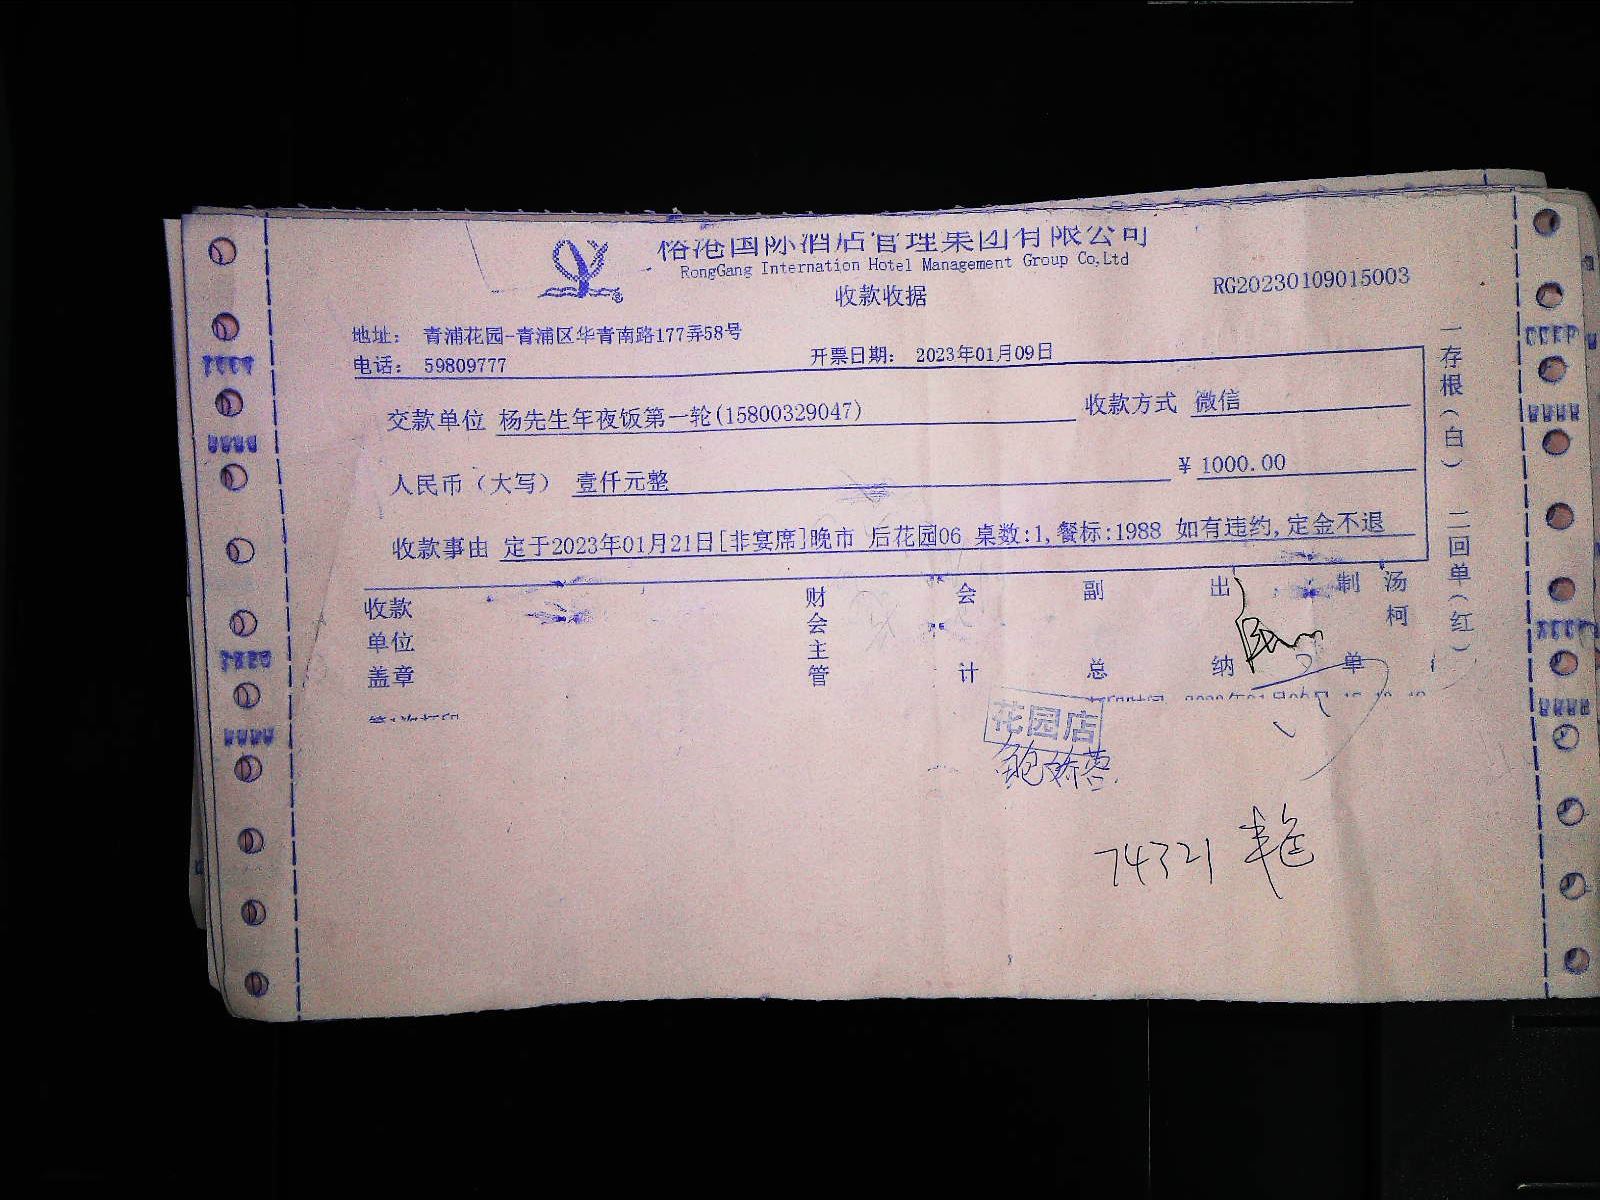 裕港国际酒店管理集团有限公司
RongGang Internation Hotel Management Group Co,Ltd
收款收据
RG20230109015003
地址： 青浦花园-青浦区华青南路177弄58号
电话： 59809777
开票日期： 2023年01月09日
交款单位 杨先生年夜饭第一轮(15800329047)
收款方式 微信
人民币（大写） 壹仟元整
¥ 1000.00
收款事由 定于2023年01月21日[非宴席]晚市 后花园06 桌数:1,餐标:1988 如有违约,定金不退
一存根（白） 二回单（红）
收款单位盖章
财会主管
会计
副总
出纳
制单
汤柯
花园店
74321